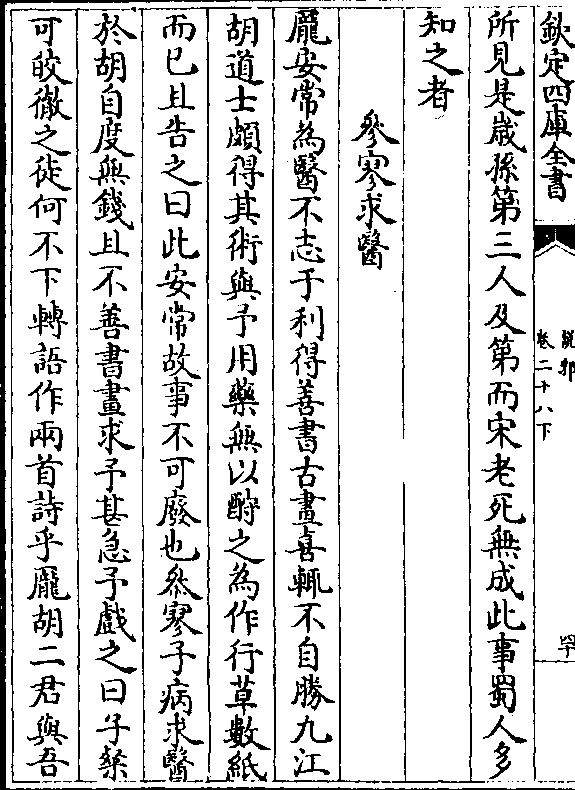 欽定四庫全書
說郛
卷二十八下
所見是嵗孫第三人及第而宋老死無成此事蜀人多
知之者
參寥求醫
龎安常為醫不志于利得善書古畫喜輒不自勝九江
胡道士頗得其術與予用藥無以酧之為作行草數紙
而已且告之曰此安常故事不可廢也叅寥子病求醫
於胡自度無錢且不善書畫求予甚急予戲之曰子粲
可皎徹之徒何不下轉語作兩首詩乎龎胡二君與吾